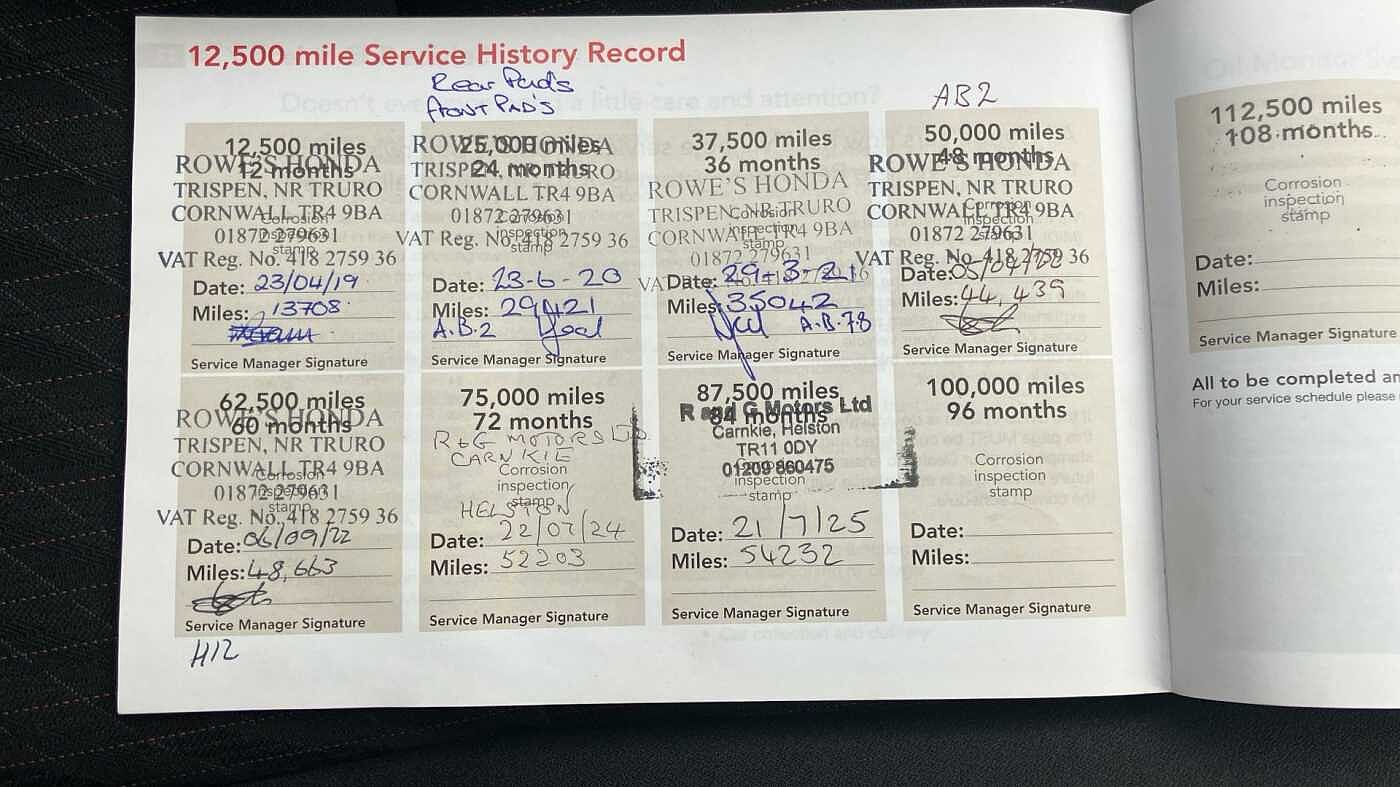 12,500 mile Service History Record
Rear Pads
FRONT PAD'S
AB2
12,500 miles
12 months
ROWE'S HONDA
TRISPEN, NR TRURO
CORNWALL TR4 9BA
01872 279631
VAT Reg. No. 418 2759 36
Corrosion
inspection
stamp
Date: 23/04/19
Miles: 13708
Service Manager Signature
25,000 miles
24 months
ROWE'S HONDA
TRISPEN, NR TRURO
CORNWALL TR4 9BA
01872 279631
VAT Reg. No. 418 2759 36
Corrosion
inspection
stamp
Date: 23-6-20
Miles: 29421
A.B.2
Service Manager Signature
37,500 miles
36 months
ROWE'S HONDA
TRISPEN, NR TRURO
CORNWALL TR4 9BA
01872 279631
Corrosion
inspection
stamp
Date: 29-3-21
Miles: 35042
A.B.7.8
Service Manager Signature
50,000 miles
48 months
ROWE'S HONDA
TRISPEN, NR TRURO
CORNWALL TR4 9BA
01872 279631
VAT Reg. No. 418 2759 36
Corrosion
inspection
stamp
Date: 05/04/22
Miles: 44,439
Service Manager Signature
62,500 miles
60 months
ROWE'S HONDA
TRISPEN, NR TRURO
CORNWALL TR4 9BA
01872 279631
VAT Reg. No. 418 2759 36
Corrosion
inspection
stamp
Date: 06/09/22
Miles: 48,663
Service Manager Signature
H12
75,000 miles
72 months
R&G MOTORS LTD
CARNKIE
HELSTON
Corrosion
inspection
stamp
Date: 22/07/24
Miles: 52203
Service Manager Signature
87,500 miles
84 months
R and G Motors Ltd
Carnkie, Helston
TR11 0DY
01209 860475
inspection
stamp
Date: 21/7/25
Miles: 54232
Service Manager Signature
100,000 miles
96 months
Corrosion
inspection
stamp
Date:
Miles:
Service Manager Signature
112,500 miles
108 months
Corrosion
inspection
stamp
Date:
Miles:
Service Manager Signature
All to be completed
For your service schedule please